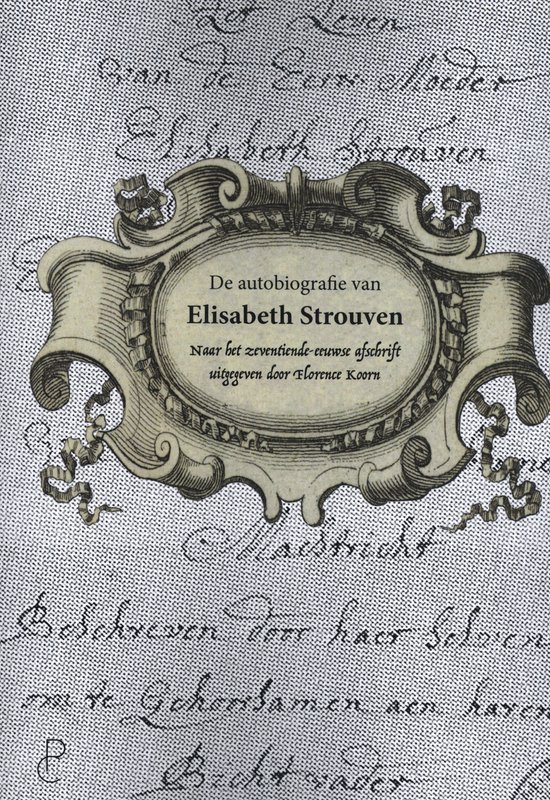 Het Leven
van de Eerw Moeder
Elisabeth Strouven
De autobiografie van
Elisabeth Strouven
Naar het zeventiende-eeuwse afschrift
uitgegeven door Florence Koorn
Mastricht
Beschreven door haer selven
om te Gehorsamen aen haren
Bicht vader